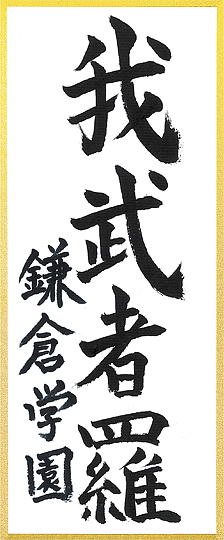 我武者羅
鎌倉学園